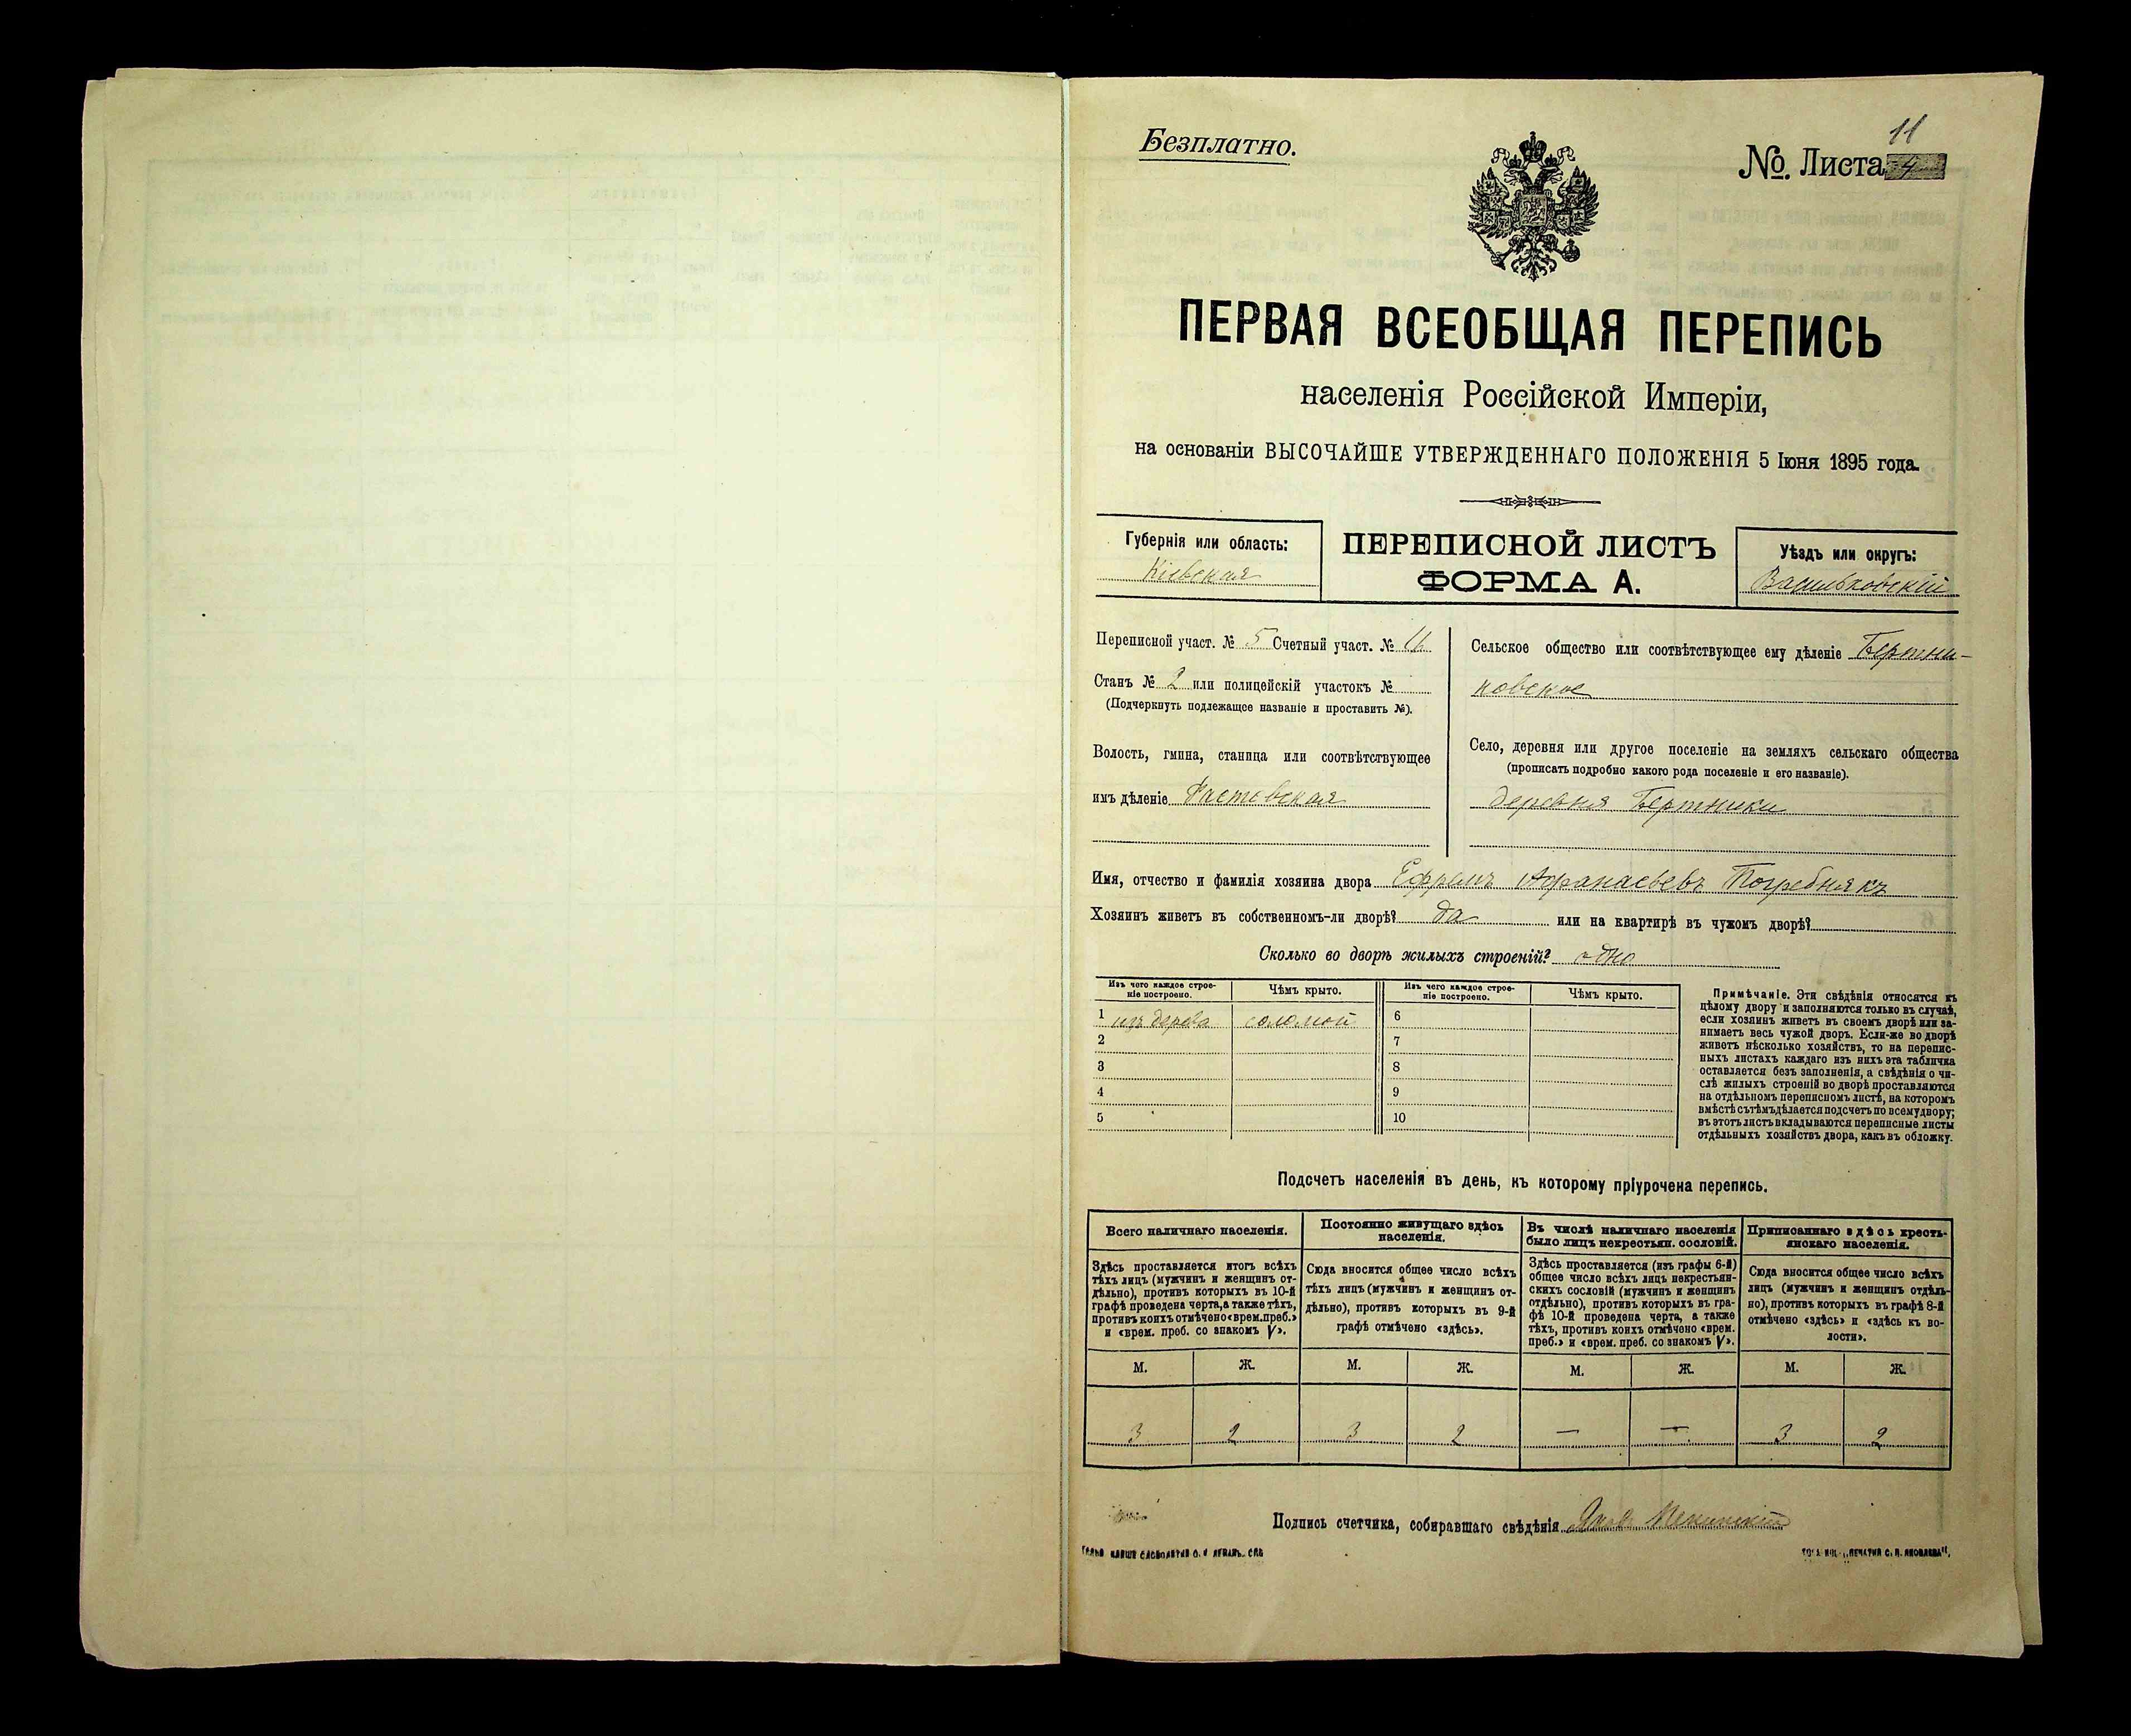 Безплатно.
11
№. Листа 4
ПЕРВАЯ ВСЕОБЩАЯ ПЕРЕПИСЬ
населенія Россійской Имперіи,
на основаніи ВЫСОЧАЙШЕ УТВЕРЖДЕННАГО ПОЛОЖЕНІЯ 5 Іюня 1895 года.
Губернія или область:
Кіевская
ПЕРЕПИСНОЙ ЛИСТЪ
ФОРМА А.
Уѣздъ или округъ:
Васильковскій
Переписной участ. № 5 Счетный участ. № 11
Станъ № 2 или полицейскій участокъ №
(Подчеркнуть подлежащее названіе и проставить №).
Волость, гмина, станица или соотвѣтствующее
имъ дѣленіе Фастовская
Сельское общество или соотвѣтствующее ему дѣленіе Бертни-
ковское
Село, деревня или другое поселеніе на земляхъ сельскаго общества
(прописать подробно какого рода поселеніе и его названіе).
деревня Бертники
Имя, отчество и фамилія хозяина двора Ефремъ Афанасьевъ Погребнякъ
Хозяинъ живетъ въ собственномъ-ли дворѣ? да или на квартирѣ въ чужомъ дворѣ?
Сколько во дворѣ жилыхъ строеній? одно
Изъ чего каждое строе-
ніе построено.
Чѣмъ крыто.
Изъ чего каждое строе-
ніе построено.
Чѣмъ крыто.
1 изъ дерева соломой 6
2 7
3 8
4 9
5 10
Примѣчаніе. Эти свѣдѣнія относятся къ
цѣлому двору и заполняются только въ случаѣ,
если хозяинъ живетъ въ своемъ дворѣ или за-
нимаетъ весь чужой дворъ. Если-же во дворѣ
живетъ нѣсколько хозяйствъ, то на перепис-
ныхъ листахъ каждаго изъ нихъ эта табличка
оставляется безъ заполненія, а свѣдѣнія о чи-
слѣ жилыхъ строеній во дворѣ проставляются
на отдѣльномъ переписномъ листѣ, на которомъ
вмѣстѣ съ тѣмъ дѣлается подсчетъ по всему двору;
въ этотъ листъ вкладываются переписные листы
отдѣльныхъ хозяйствъ двора, какъ въ обложку.
Подсчетъ населенія въ день, къ которому пріурочена перепись.
Всего наличнаго населенія.
Здѣсь проставляется итогъ всѣхъ
тѣхъ лицъ (мужчинъ и женщинъ от-
дѣльно), противъ которыхъ въ 10-й
графѣ проведена черта, а также тѣхъ,
противъ коихъ отмѣчено «врем. преб.»
и «врем. преб. со знакомъ V».
Постоянно живущаго здѣсь
населенія.
Сюда вносится общее число всѣхъ
тѣхъ лицъ (мужчинъ и женщинъ от-
дѣльно), противъ которыхъ въ 9-й
графѣ отмѣчено «здѣсь».
Въ числѣ наличнаго населенія
было лицъ некрестьян. сословій.
Здѣсь проставляется (изъ графы 6-й)
общее число всѣхъ лицъ некрестьян-
скихъ сословій (мужчинъ и женщинъ
отдѣльно), противъ которыхъ въ гра-
фѣ 10-й проведена черта, а также
тѣхъ, противъ коихъ отмѣчено «врем.
преб.» и «врем. преб. со знакомъ V».
Приписаннаго здѣсь кресть-
янскаго населенія.
Сюда вносится общее число всѣхъ
лицъ (мужчинъ и женщинъ отдѣль-
но), противъ которыхъ въ графѣ 8-й
отмѣчено «здѣсь» и «здѣсь къ во-
лости».
М. Ж. М. Ж. М. Ж. М. Ж.
3 2 3 2 — — 3 2
Подпись счетчика, собиравшаго свѣдѣнія